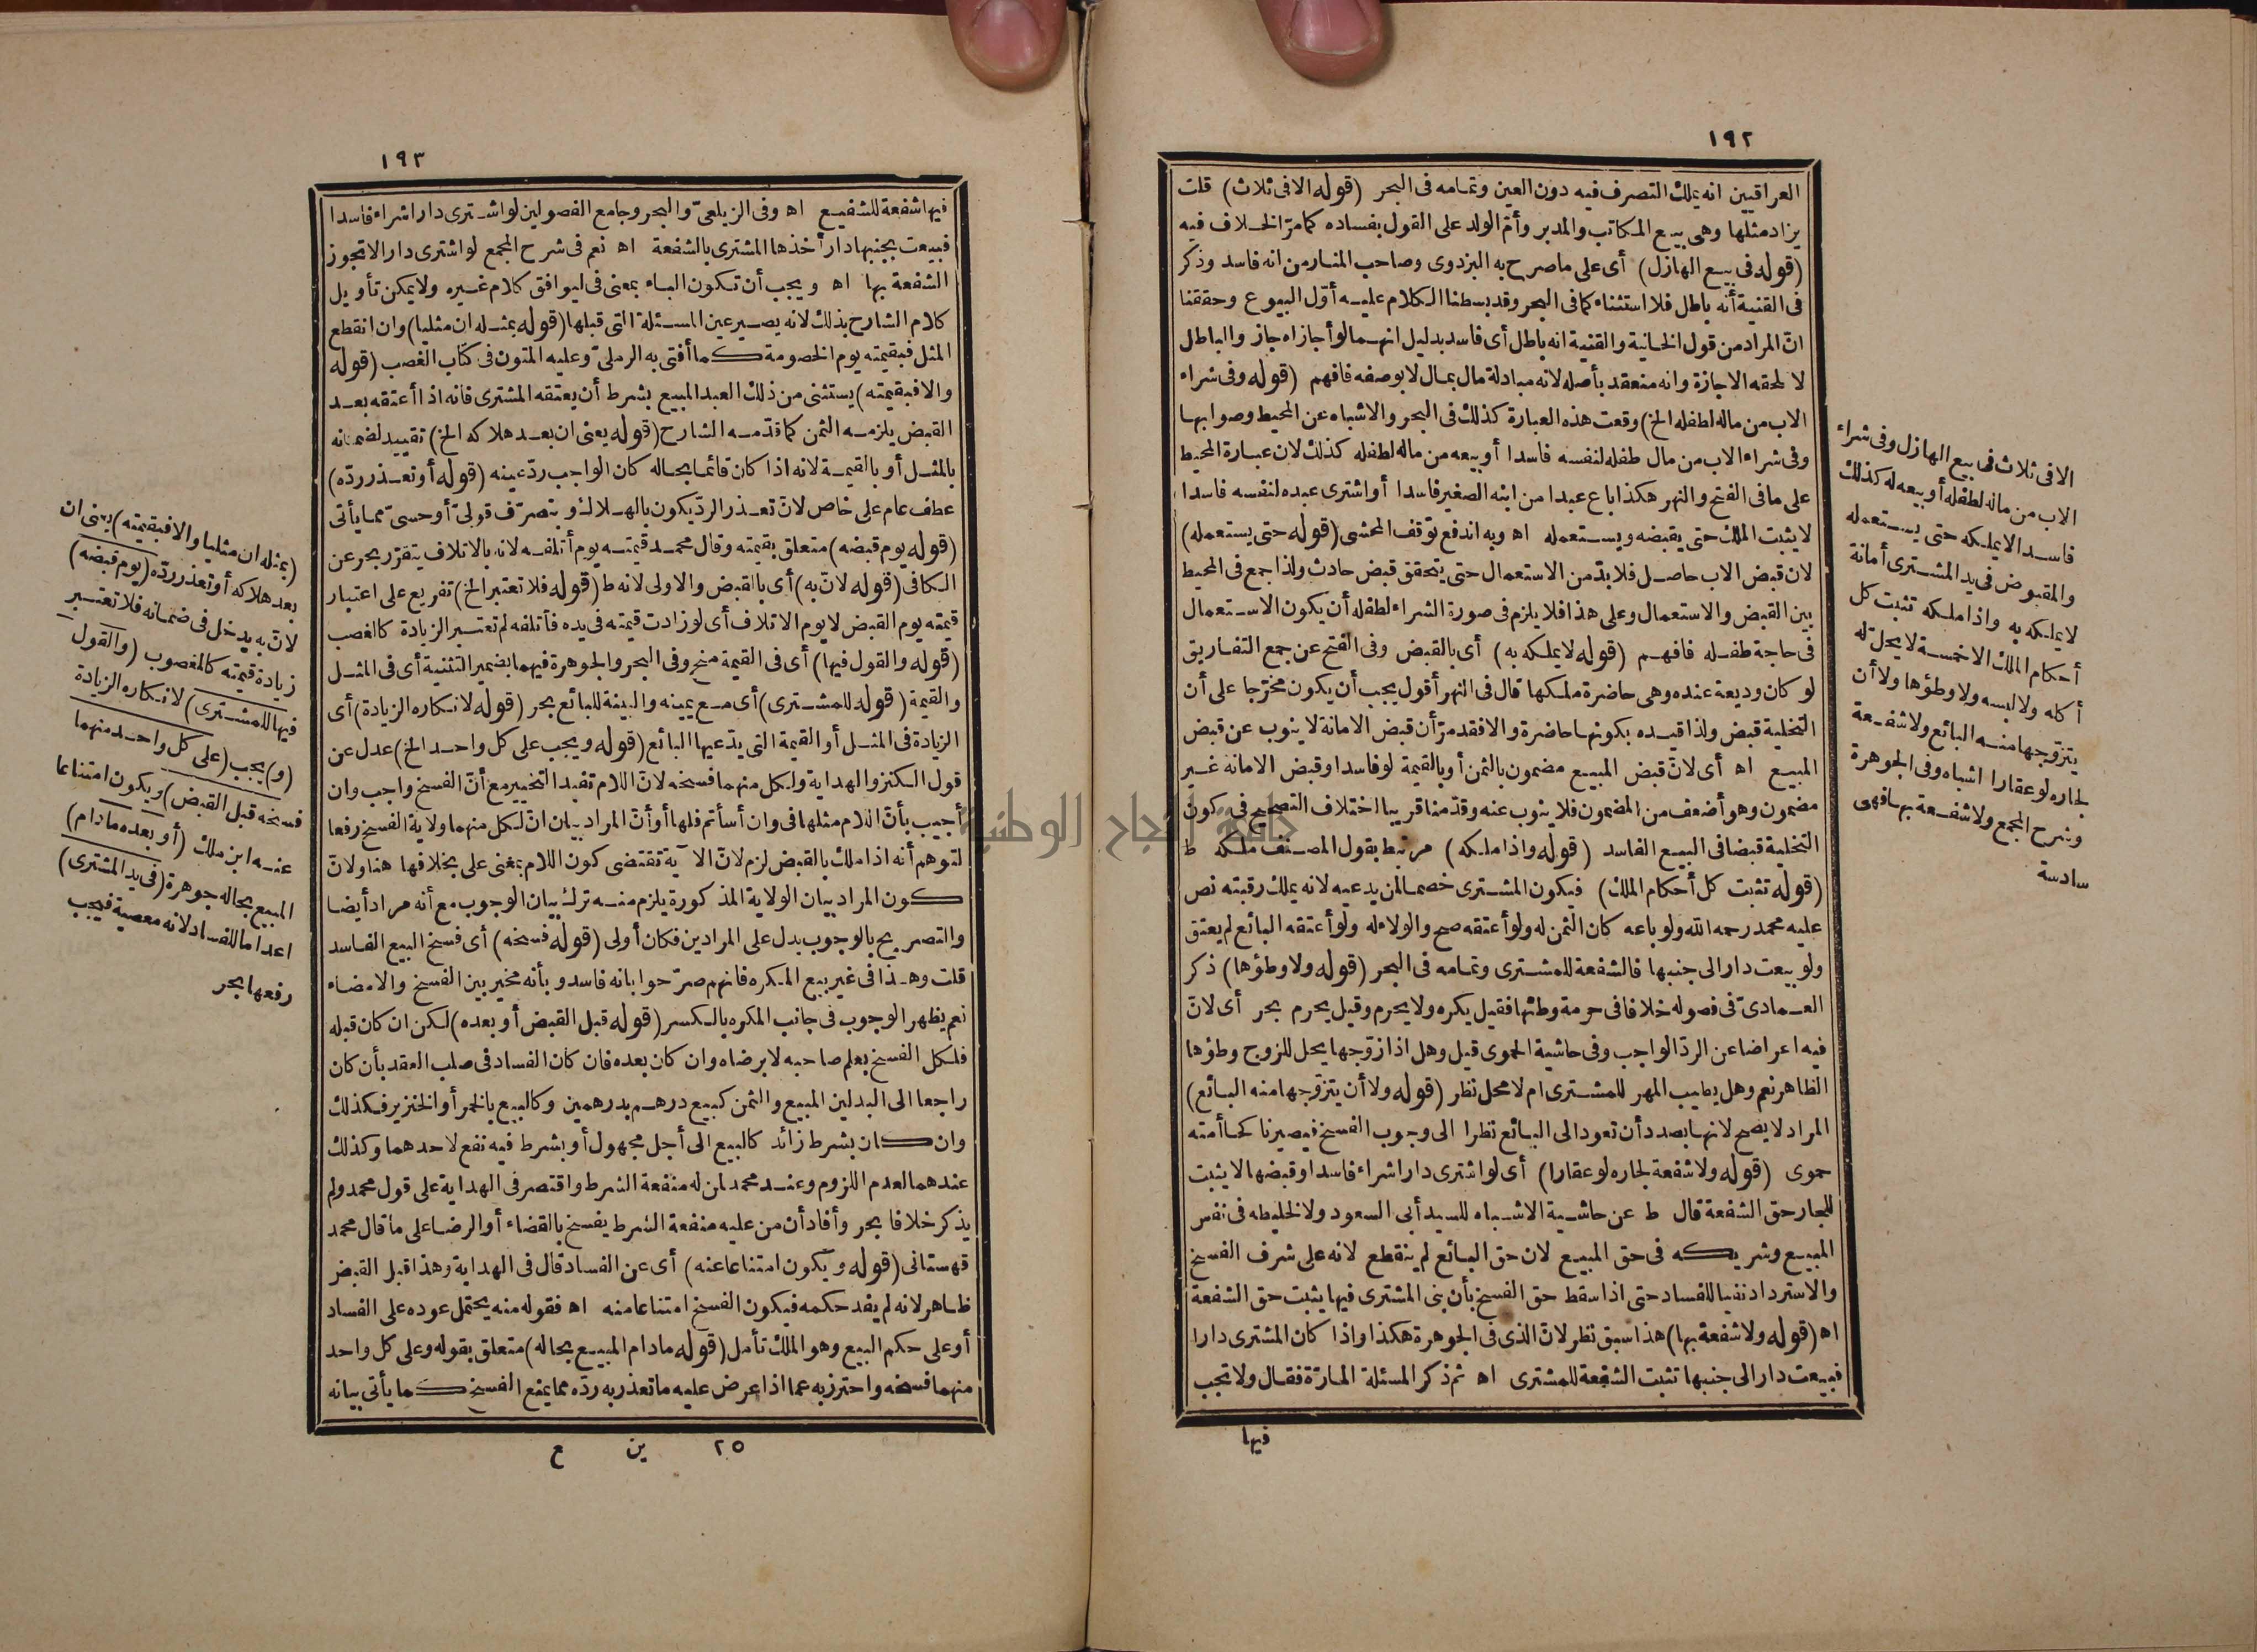 ١٩٢
العراقيين انه يملك التصرف فيه دون العين وتمامه فى البحر (قوله الا فى ثلاث) قلت
يزاد مثلها وهى بيع المكاتب والمدبر وأم الولد على القول بفساده كما مرّ الخلاف فيه
(قوله فى بيع الهازل) أى على ما صرح به البزدوى وصاحب المنار من انه فاسد وذكر
فى القنية أنه باطل فلا استثناء كما فى البحر وقد بسطنا الكلام عليه أوّل البيوع وحققنا
انّ المراد من قول الخانية والقنية انه باطل أى فاسد بدليل انهما لو أجازاه جاز والباطل
لا تلحقه الاجازة وانه منعقد بأصله لانه مبادلة مال بمال لا بوصفه فافهم (قوله وفى شراء
الاب من ماله لطفله الخ) وقعت هذه العبارة كذلك فى البحر والاشباه عن المحيط وصوابها
وفى شراء الاب من مال طفله لنفسه فاسدا أو بيعه من ماله لطفله كذلك لان عبارة المحيط
على ما فى الفتح والنهر هكذا باع عبدا من ابنه الصغير فاسدا أو اشترى عبده لنفسه فاسدا
لا يثبت الملك حتى يقبضه ويستعمله اه وبه اندفع توقف المحشى (قوله حتى يستعمله)
لان قبض الاب حاصل فلا بدّ من الاستعمال حتى يتحقق قبض حادث ولذا جمع فى المحيط
بين القبض والاستعمال وعلى هذا فلا يلزم فى صورة الشراء لطفله أن يكون الاستعمال
فى حاجة طفله فافهم (قوله لا يملكه به) أى بالقبض وفى الفتح عن جمع التفاريق
لو كان وديعة عنده وهى حاضرة ملكها قال فى النهر أقول يجب أن يكون مخرّجا على أن
التخلية قبض ولذا قيده بكونها حاضرة والا فقد مرّ أن قبض الامانة لا ينوب عن قبض
المبيع اه أى لانّ قبض المبيع مضمون بالثمن أو بالقيمة لو فاسدا وقبض الامانه غير
مضمون وهو أضعف من المضمون فلا ينوب عنه وقدّمنا قريبا اختلاف التصحيح فى كون
التخلية قبضا فى البيع الفاسد (قوله واذا ملكه) مرتبط بقول المصنف ملكه ط
(قوله تثبت كل أحكام الملك) فيكون المشترى خصما لمن يدعيه لانه يملك رقبته نص
عليه محمد رحمه الله ولو باعه كان الثمن له ولو أعتقه صح والولاء له ولو أعتقه البائع لم يعتق
ولو بيعت دار الى جنبها فالشفعة للمشترى وتمامه فى البحر (قوله ولا وطؤها) ذكر
العمادىّ فى فصوله خلافا فى حرمة وطئها فقيل يكره ولا يحرم وقيل يحرم بحر أى لانّ
فيه اعراضا عن الردّ الواجب وفى حاشية الحموى قيل وهل اذا زوّجها يحل للزوج وطؤها
الظاهر نعم وهل يطيب المهر للمشترى ام لا محل نظر (قوله ولا أن يتزوّجها منه البائع)
المراد لا يصح لانها بصدد أن تعود الى البائع نظرا الى وجوب الفسخ فيصير ناكحا أمته
حموى (قوله ولا شفعة لجاره لو عقارا) أى لو اشترى دارا شراء فاسدا وقبضها لا يثبت
للجار حق الشفعة قال ط عن حاشية الاشباه للسيد أبى السعود ولا لخليطه فى نفس
المبيع وشريكه فى حق المبيع لان حق البائع لم ينقطع لانه على شرف الفسخ
والاسترداد نفيا للفساد حتى اذا سقط حق الفسخ بأن بنى المشترى فيها يثبت حق الشفعة
اه (قوله ولا شفعة بها) هذا سبق نظر لانّ الذى فى الجوهرة هكذا واذا كان المشترى دارا
فبيعت دار الى جنبها تثبت الشفعة للمشترى اه ثم ذكر المسئلة المارّة فقال ولا تجب
فيها
الا فى ثلاث فى بيع الهازل وفى شراء
الاب من ماله لطفله أو بيعه له كذلك
فاسدا لا يملكه حتى يستعمله
والمقبوض فى يد المشترى أمانة
لا يملكه به واذا ملكه تثبت كل
أحكام الملك الا خمسة لا يحل له
أكله ولا لبسه ولا وطؤها ولا أن
يتزوّجها منه البائع ولا شفعة
لجاره لو عقارا اشباه وفى الجوهرة
وشرح المجمع ولا شفعة بها فهى
سادسة
١٩٣
فيها شفعة للشفيع اه وفى الزيلعىّ والبحر وجامع الفصولين لو اشترى دارا شراء فاسدا
فبيعت بجنبها دار أخذها المشترى بالشفعة اه نعم فى شرح المجمع لو اشترى دارا لا تجوز
الشفعة بها اه ويجب أن تكون الباء بمعنى فى ليوافق كلام غيره ولا يمكن تأويل
كلام الشارح بذلك لانه يصير عين المسئلة التى قبلها (قوله بمثله ان مثليا) وان انقطع
المثل فبقيمته يوم الخصومة كما أفتى به الرملىّ وعليه المتون فى كتاب الغصب (قوله
والا فبقيمته) يستثنى من ذلك العبد المبيع بشرط أن يعتقه المشترى فانه اذا أعتقه بعد
القبض يلزمه الثمن كما قدّمه الشارح (قوله يعنى ان بعد هلاكه الخ) تقييد لضمانه
بالمثل أو بالقيمة لانه اذا كان قائما بحاله كان الواجب ردّ عينه (قوله أو تعذر ردّه)
عطف عام على خاص لانّ تعذر الردّ يكون بالهلاك وبتصرّف قولىّ أو حسىّ مما يأتى
(قوله يوم قبضه) متعلق بقيمته وقال محمد قيمته يوم أتلفه لانه بالاتلاف يتقرّر بحر عن
الكافى (قوله لانّ به) أى بالقبض والاولى لانه ط (قوله فلا تعتبر الخ) تفريع على اعتبار
قيمته يوم القبض لا يوم الاتلاف أى لو زادت قيمته فى يده فأتلفه لم تعتبر الزيادة كالغصب
(قوله والقول فيها) أى فى القيمة منح وفى البحر والجوهرة فيهما بضمير التثنية أى فى المثل
والقيمة (قوله للمشترى) أى مع يمينه والبينة للبائع بحر (قوله لانكاره الزيادة) أى
الزيادة فى المثل أو القيمة التى يدّعيها البائع (قوله ويجب على كل واحد الخ) عدل عن
قول الكنز والهداية ولكل منهما فسخه لانّ اللام تفيد التخيير مع أنّ الفسخ واجب وان
أجيب بأنّ اللام مثلها فى وان أسأتم فلها أو أنّ المراد بيان انّ لكل منهما ولاية الفسخ رفعا
لتوهم أنه اذا ملك بالقبض لزم لانّ الآية تقتضى كون اللام بمعنى على بخلافها هنا ولانّ
كون المراد بيان الولاية المذكورة يلزم منه ترك بيان الوجوب مع أنه مراد أيضا
والتصريح بالوجوب يدل على المرادين فكان أولى (قوله فسخه) أى فسخ البيع الفاسد
قلت وهذا فى غير بيع المكره فانهم صرّحوا بانه فاسد وبأنه مخير بين الفسخ والامضاء
نعم يظهر الوجوب فى جانب المكره بالكسر (قوله قبل القبض أو بعده) لكن ان كان قبله
فلكل الفسخ بعلم صاحبه لا برضاه وان كان بعده فان كان الفساد فى صلب العقد بأن كان
راجعا الى البدلين المبيع والثمن كبيع درهم بدرهمين وكالبيع بالخمر أو الخنزير فكذلك
وان كان بشرط زائد كالبيع الى أجل مجهول أو بشرط فيه نفع لاحدهما وكذلك
عندهما لعدم اللزوم وعند محمد لمن له منفعة الشرط واقتصر فى الهداية على قول محمد ولم
يذكر خلافا بحر وأفاد أن من عليه منفعة الشرط يفسخ بالقضاء أو الرضا على ما قال محمد
قهستانى (قوله ويكون امتناعا عنه) أى عن الفساد قال فى الهداية وهذا قبل القبض
ظاهر لانه لم يفد حكمه فيكون الفسخ امتناعا منه اه فقوله منه يحتمل عوده على الفساد
أو على حكم البيع وهو الملك تأمل (قوله مادام المبيع بحاله) متعلق بقوله وعلى كل واحد
منهما فسخه واحترز به عما اذا عرض عليه ما تعذر به ردّه مما يمنع الفسخ كما يأتى بيانه
٢٥ ين ع
(بمثله ان مثليا والا فبقيمته) يعنى ان
بعد هلاكه أو تعذر ردّه (يوم قبضه)
لانّ به يدخل فى ضمانه فلا تعتبر
زيادة قيمته كالمغصوب (والقول
فيها للمشترى) لانكاره الزيادة
(و) يجب (على كل واحد منهما
فسخه قبل القبض) ويكون امتناعا
عنه ابن ملك (أو بعده مادام)
المبيع بحاله جوهرة (فى يد المشترى)
اعداما للفساد لانه معصية فيجب
رفعها بحر
جامعة النجاح الوطنية